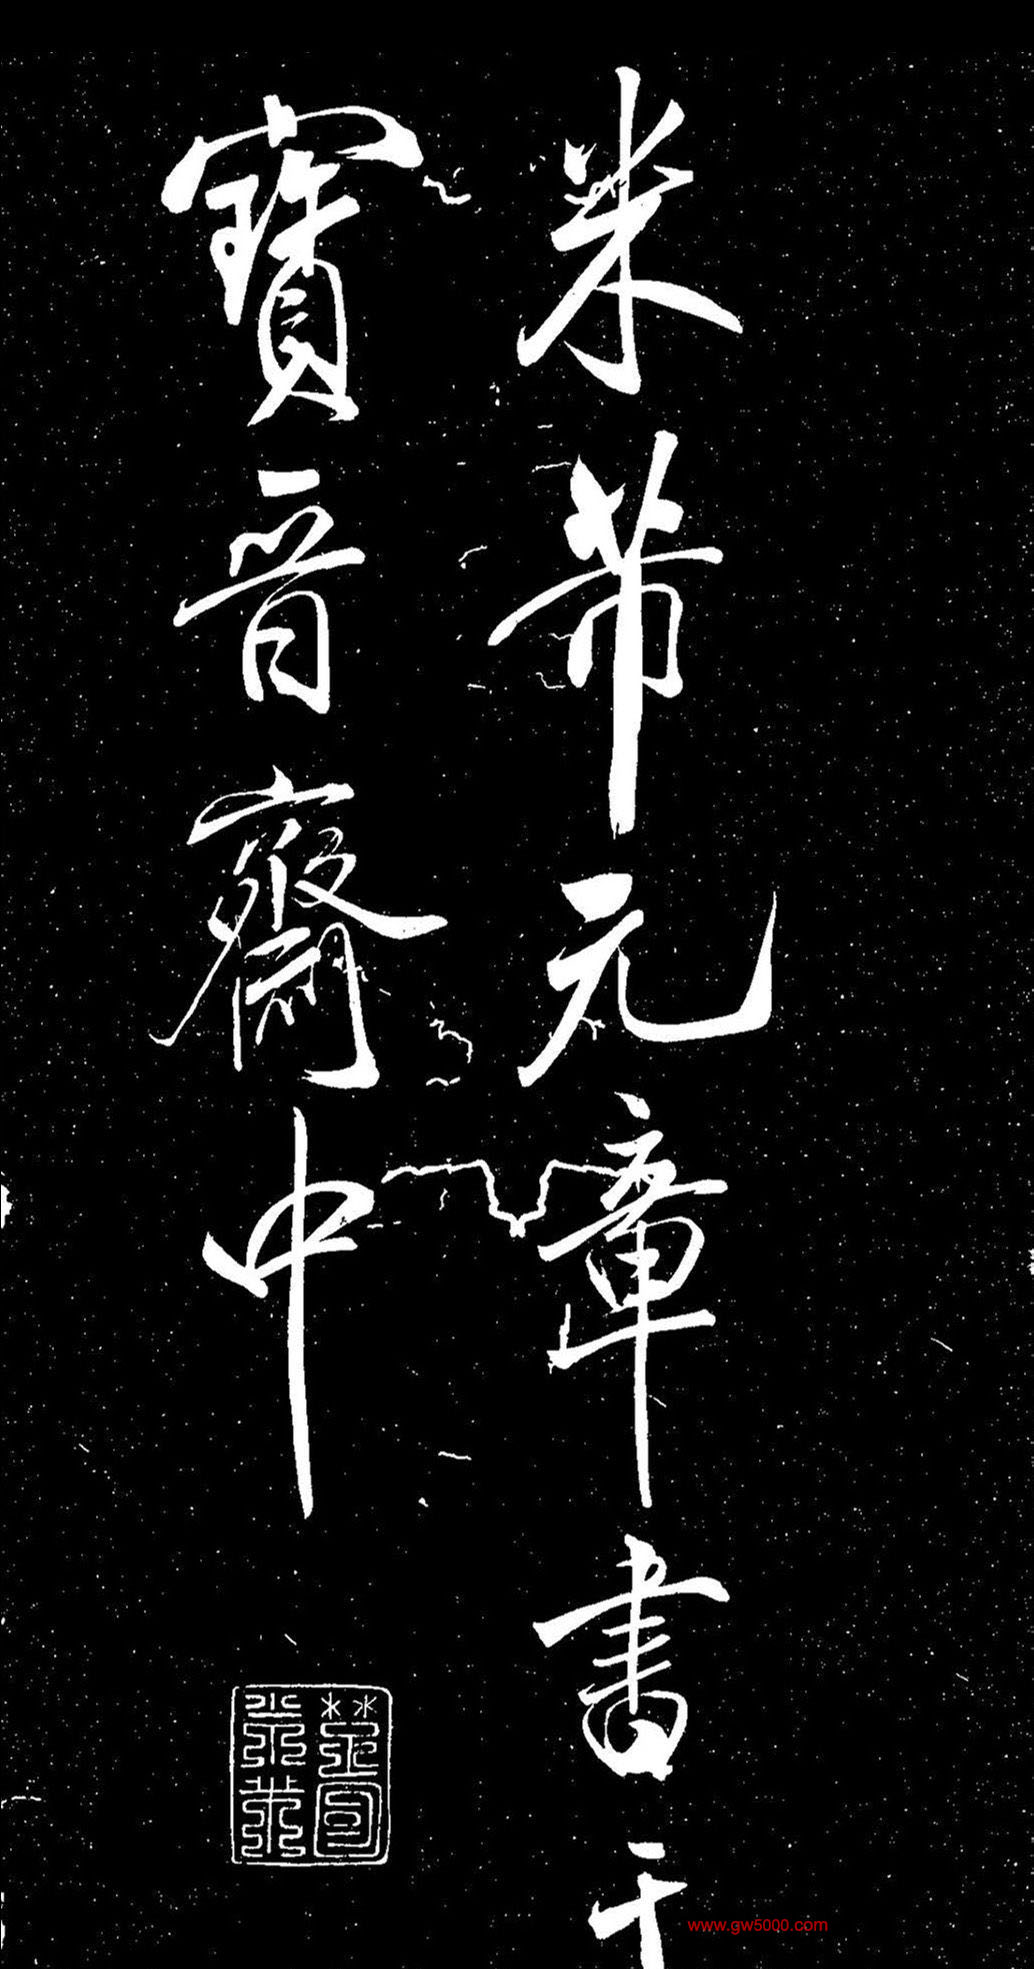 米芾元章書于
寶晋齋中
www.gw5000.com